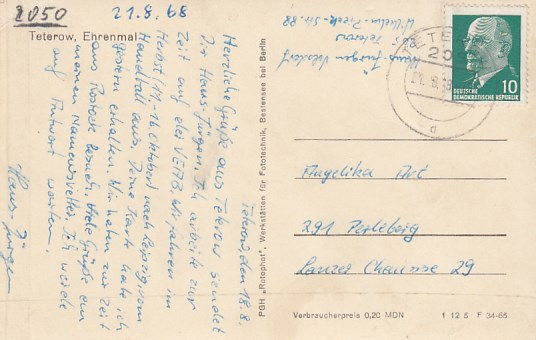 2050
21.8.68
Teterow, Ehrenmal
Teterow, den 18.8.
Herzliche Grüße aus Teterow sendet
Dir Hans-Jürgen. Ich arbeite zur
Zeit auf der VEAB. Wir fahren im
Herbst 11.-16. Oktober nach Leipzig vom
Handball aus. Deine Karte habe ich
gestern erhalten. Wir haben zur Zeit
aus Rostock Besuch. Viele Grüße an
meinen Namensvetter. Ich werde
auf Antwort warten.
Hans-Jürgen
PGH „Rotophot", Werkstätten für Fototechnik, Bestensee bei Berlin
Hans-Jürgen
205 Teterow
Wilhelm-Pieck-Str. 88
TETEROW
20
d
10
DEUTSCHE
DEMOKRATISCHE REPUBLIK
Angelika
291 Perleberg
Lanzer Chaussee 29
Verbraucherpreis 0,20 MDN
1 12 5 F 34-66